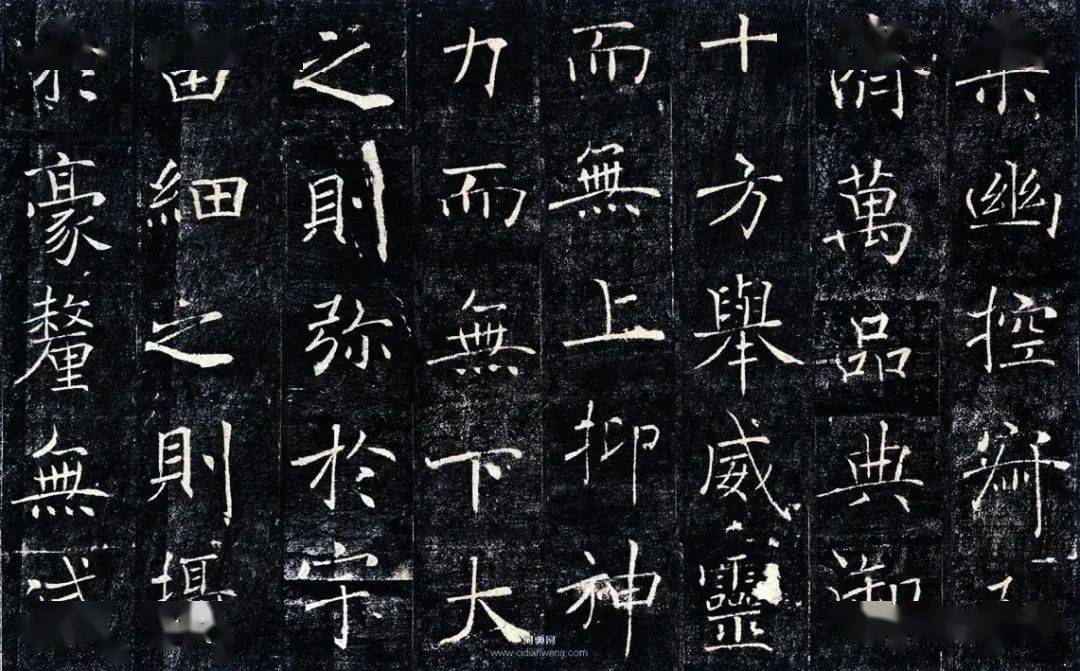 幽控寂
濟萬品典御
十方舉威靈
而無上抑神
力而無下大
之則弥於宇
宙細之則攝
於豪釐無滅
词典网
www.cidianwang.com